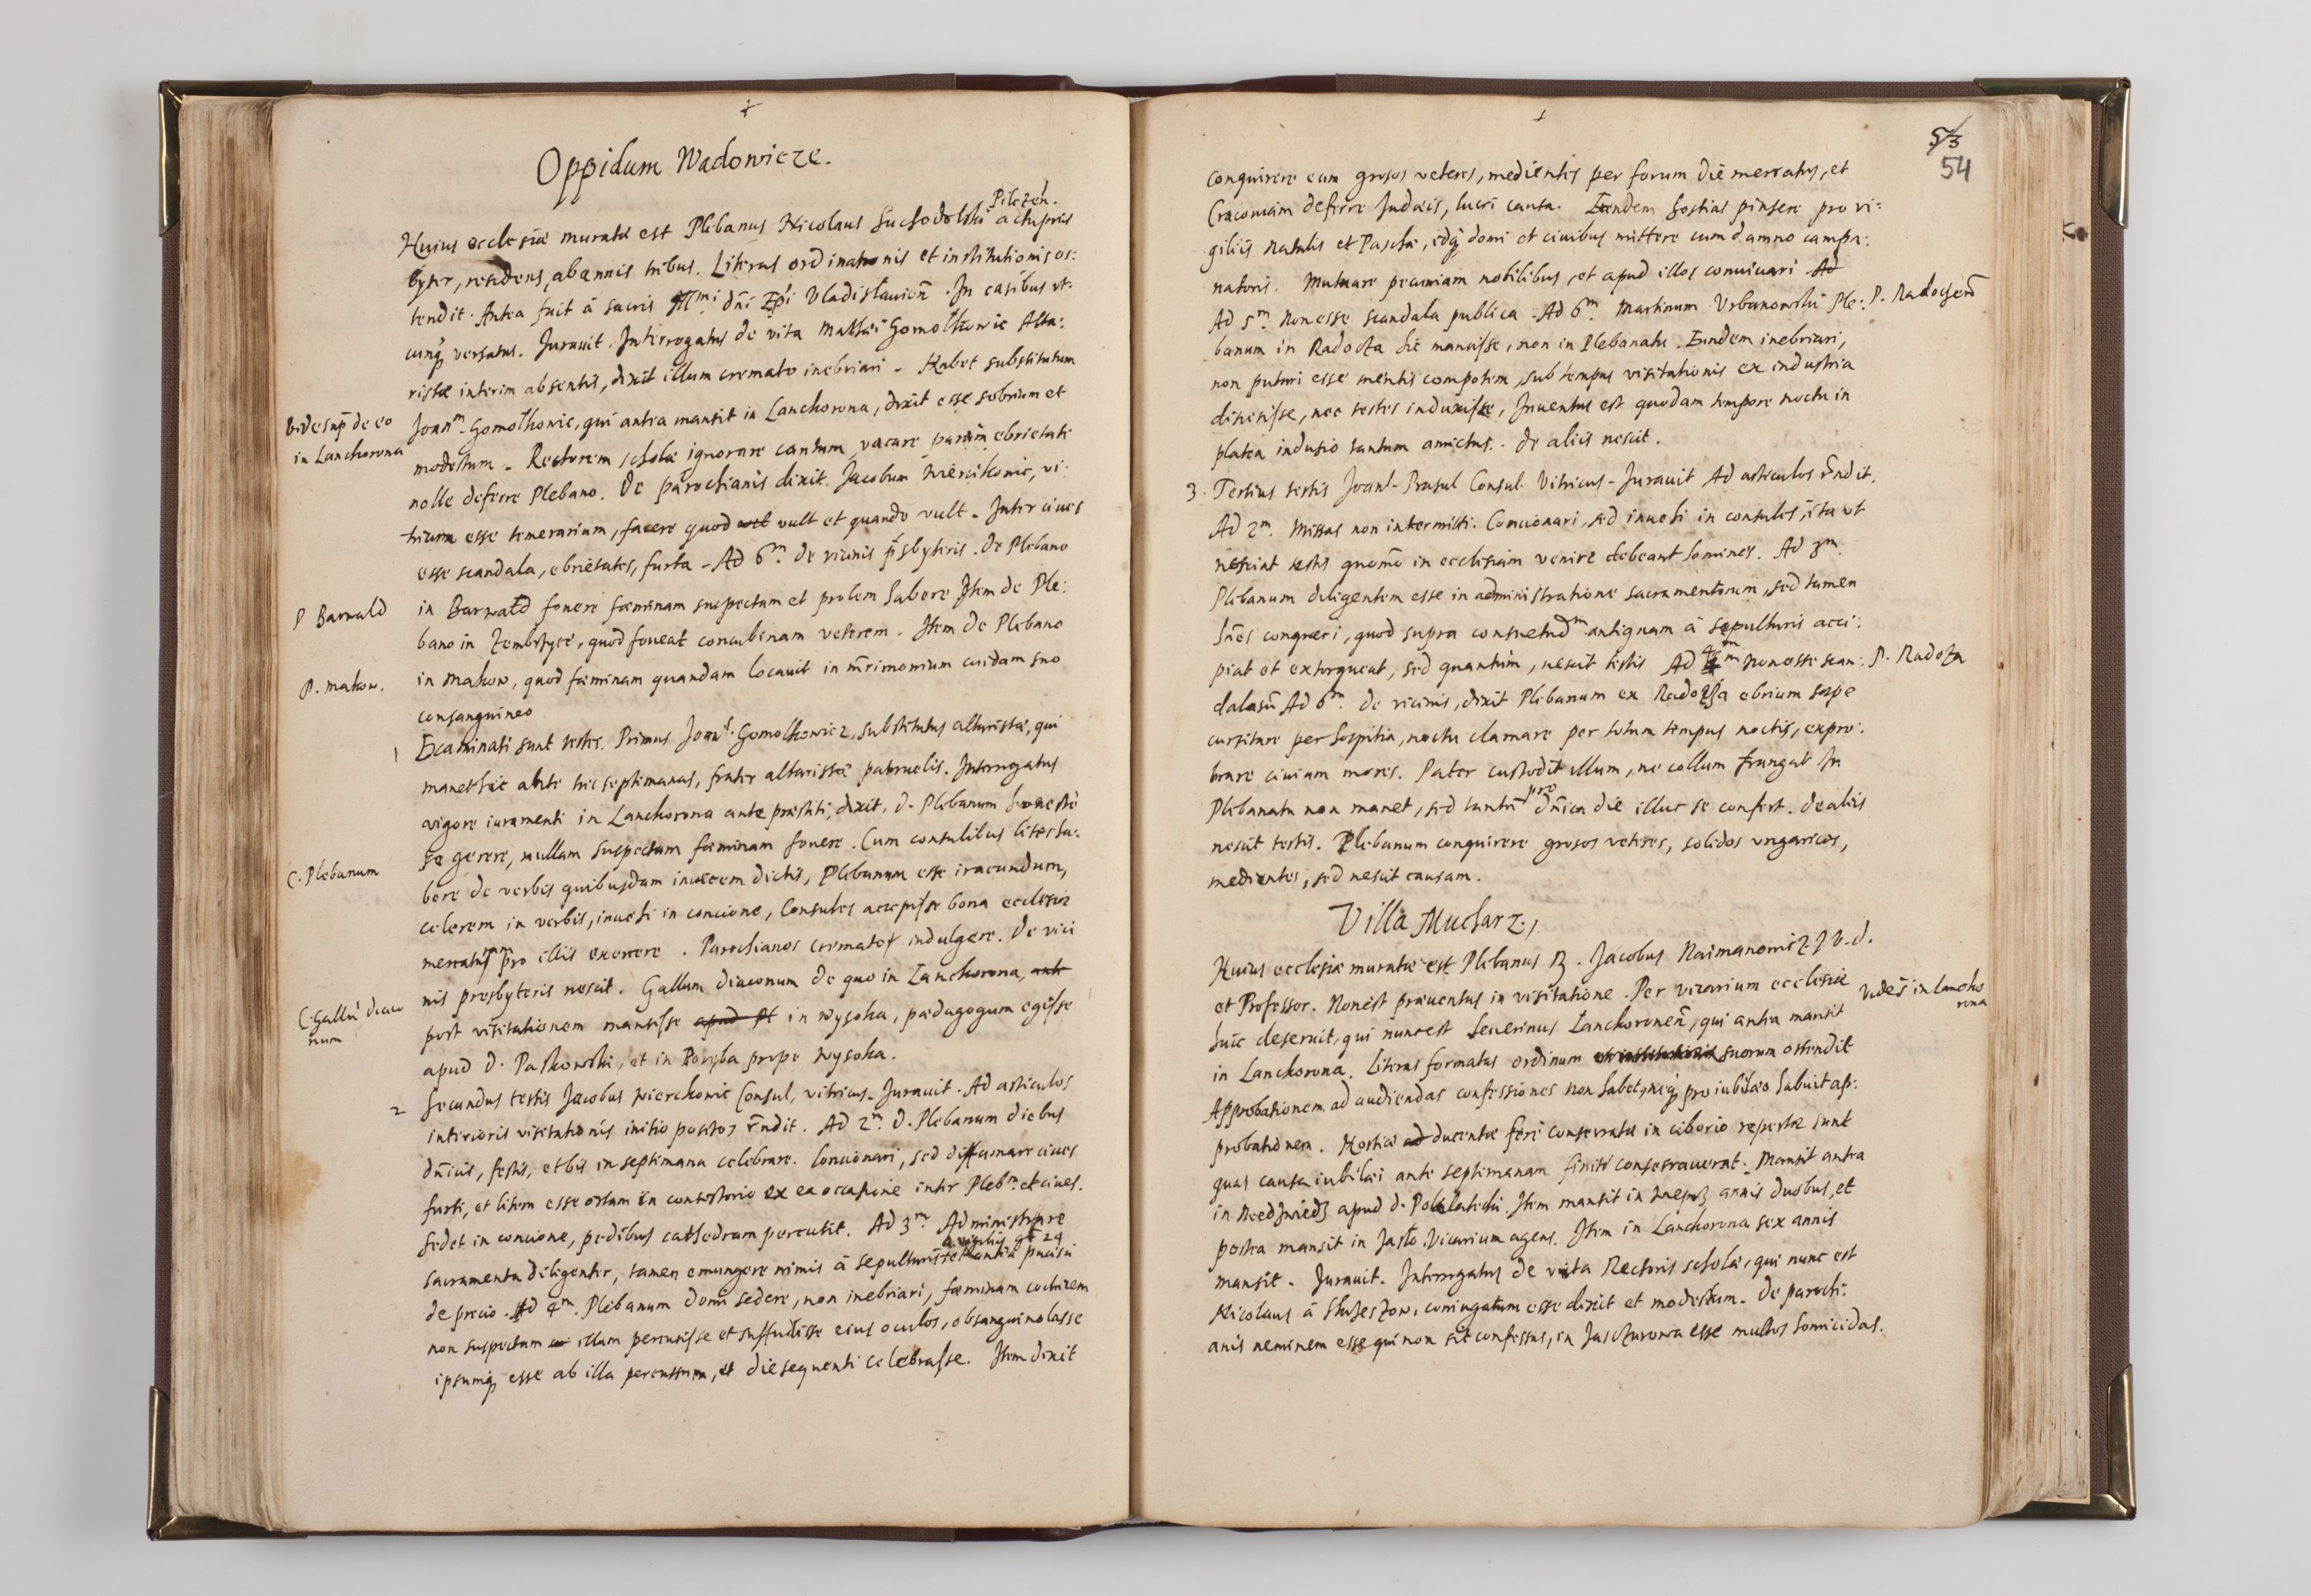 Oppidum Wadowicze.
Pilczen̄.
Huius ecclesiæ muratæ est Plebanus Nicolaus Suchodolski actu pris
byter, residens, ab annis tribus. Literas ordinationis et institutionis os:
tendit. Antea fuit à sacris Illmi dn̄i Epi Vladislauien̄. In casibus ut-
cunq; versatus. Jurauit. Interrogatus de vita Matthæi Gomolkowic Alta:
ristæ interim absentis, dixit illum cremato inebriari - Habet substitutum
Vide sup̄ de eo
in Lanckorona
Joannem Gomolkowic, qui antea mansit in Lanckorona, dixit esse sobrium et
modestum - Rectorem scholæ ignorare cantum, vacare parum ebrietati
nolle deferre Plebano. De parochianis dixit. Jacobum Wiercikowic, vi:
tricum esse temerarium, facere quod vult et quando vult - Inter ciues
esse scandala, ebrietates, furta - Ad 6m. de vicinis p̄sbyteris. De Plebano
P Barwald
in Barwald fouere fæminam suspectam et prolem habere Item de Ple:
bano in Zembrzyce, quod foueat concubinam veterem. Item de Plebano
P. Makow.
in Makow, quod fæminam quandam locauit in m̄rimonium cuidam suo
consanguineo
1 Examinati sunt testes. Primus Joann. Gomolkowicz, substitutus altaristæ, qui
manet hic ab tres septimanas, frater altaristæ patruelis. Interrogatus
a vigore iuramenti in Lanckorona ante præstiti, dixit, d. Plebanum honeste
se gerere, nullam suspectam fæminam fouere. Cum consulibus lites ha:
C. Plebanum
bere de verbis quibusdam inuicem dictis, Plebanum esse iracundum,
celerem in verbis, inuehi in concione, Consules accepisse bona ecclesiæ
mercatus pro illis exercere. Parochianos cremato indulgere. De vici
nis presbyteris nescit. Gallum diaconum de quo in Lanckorona, ante
C. Gallū diaco
num
post visitationem mansisse apud Pl in Wysoka, pædagogum egisse
apud D. Paskowski, et in Poręba prope Wysoka.
2 Secundus testis Jacobus Wierckowic Consul, vitricus - Jurauit. Ad articulos
interioris visitationis initio positos r̄ndit. Ad 2m. D. Plebanum diebus
dn̄icis, festis, et bis in septimana celebrare. Concionari, sed diffamare ciues
furti, et litem esse ortam in consistorio ex ea occasione inter Plebm. et ciues.
Sedet in concione, pedibus cathedram percutit. Ad 3m. Administrare
sacramenta diligenter, tamen emungere nimis à sepulturis
de precio. Ad 4m. Plebanum domi sedere, non inebriari, fæminam coctricem
non suspectam illam percussisse et suffudisse eius oculos, obsanguinolasse
ipsumq; esse ab illa percussum, et die sequenti celebrasse. Item dixit
53
54
conquirere eum grosos veteres, medientes per forum die mercatus, et
Cracouiam deferre Judæis, lucri causa. Eundem hostias pinsere pro vi:
giliis Natalis et Paschæ, idq; domi et ciuibus mittere cum damno campa:
natoris. Mutuare pecuniam nobilibus, et apud illos conuiuari Ad
Ad 5m. Non esse scandala publica. Ad 6m. Martinum Vrbanowski Ple:
P. Radocẓen̄
banum in Radocza hic mansisse, non in Plebanatu. Eundem inebriari,
non putari esse mentis compotem, sub tempus visitationis ex industria
, nec testes induxisse, Inuentus est quodam tempore noctu in
platea indusio tantum amictus. De aliis nescit.
3. Tertius testis Joan̄ - Prasul Consul. Vitricus - Jurauit Ad articulos r̄ndit.
Ad 2m. Missas non intermitti. Concionari, sed inuehi in consules, ita ut
nesciat testis quomō in ecclesiam venire debeant homines. Ad 3m.
Plebanum diligentem esse in administratione sacramentorum, sed tamen
hōes conqueri, quod supra consuetudm antiquam à sepulturis acci:
piat et extorqueat, sed quantum, nescit testis Ad 4m Non esse scan:
P. Radoza
dalosū Ad 6m. de vicinis, dixit Plebanum ex Radocza ebrium sæpe
cursitare per hospitia, noctu clamare per totum tempus noctis, expro:
brare ciuium mores. Pater custodit illum, ne collum frangat In
Plebanatu non manet, sed tantū pro dn̄ica die illuc se confert. De aliis
nescit testis. Plebanum conquirere grosos veteres, solidos vngaricos,
medientes, sed nescit causam.
Villa Mucharz.
Huius ecclesiæ muratæ est Plebanus R. Jacobus Naimanowicz J V. d.
et Professor. Non est præuentus in visitatione. Per vicarium ecclesiæ
Videē in Lancko
rona
huic deseruit, qui nunc est Seuerinus Lanckoronen̄, qui antea mansit
in Lanckorona. Literas formatas ordinum suorum ostendit
Approbationem ad audiendas confessiones non habet, neq; pro iubilæo habuit ap:
probationem. Hostiæ ad ducentæ fere consecratæ in ciborio repertæ sunt
quas causa iubilæi ante septimanam finiti consecrauerat. Mansit antea
in Niedzwiedz apud d. . Item mansit in annis duobus, et
postea mansit in Jasło, Vicarium agens. Item in Lanckorona sex annis
mansit. Jurauit. Interrogatus de vita Rectoris scholæ, qui nunc est
Nicolaus à , coniugatum esse dixit et modestum. De parochi:
anis neminem esse qui non sit confessus, in Jasczurowa esse multos homicidas.